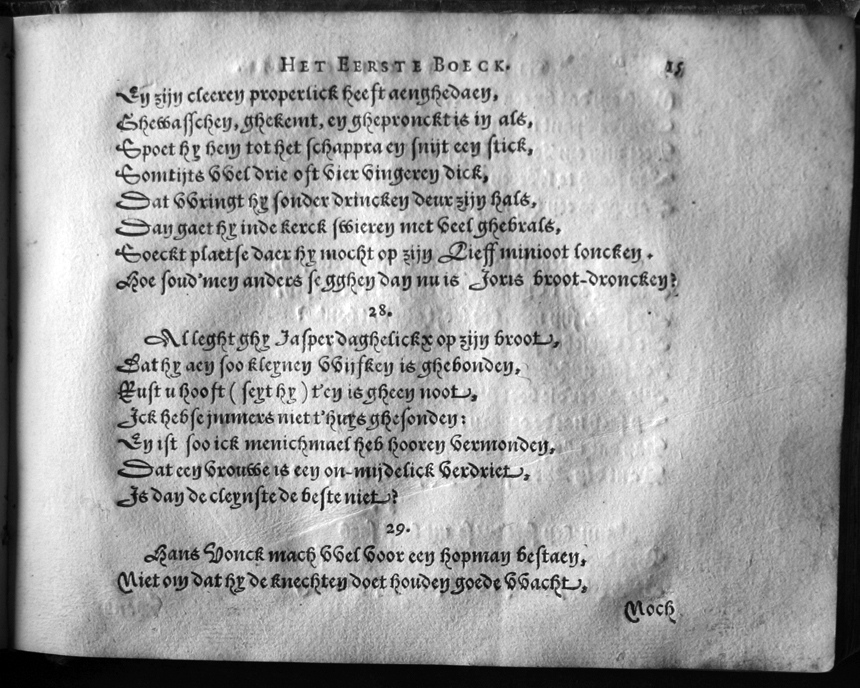 HET EERSTE BOECK. 15
En zijn cleeren properlick heeft aenghedaen,
Ghewasschen, ghekemt, en ghepronckt is in als,
Spoet hy hem tot het schappra en snijt een stick,
Somtijts wel drie oft vier vingeren dick,
Dat wringt hy sonder drincken deur zijn hals,
Dan gaet hy inde kerck swieren met veel ghebrals,
Soeckt plaetse daer hy mocht op zijn Lieff minioot loncken.
Hoe soud'men anders segghen dan nu is Joris broot-droncken?
28.
Al leght ghy Jasper daghelickx op zijn broot,
Dat hy aen soo kleynen wijfken is ghebonden,
Rust u hooft (seyt hy) t'en is gheen noot,
Ick hebse jmmers niet t'huys ghesonden:
En ist soo ick menichmael heb hooren vermonden,
Dat een vrouwe is een on-mijdelick verdriet,
Is dan de cleynste de beste niet?
29.
Hans Vonck mach wel voor een hopman bestaen,
Niet om dat hy de knechten doet houden goede wacht,
Noch